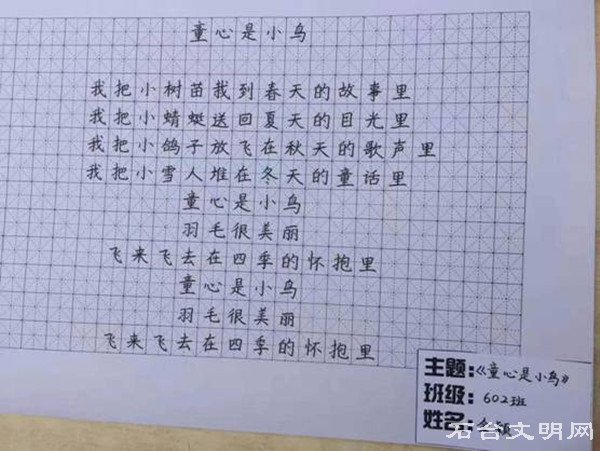 童心是小鸟
我把小树苗找到春天的故事里
我把小蜻蜓送回夏天的目光里
我把小鸽子放飞在秋天的歌声里
我把小雪人堆在冬天的童话里
童心是小鸟
羽毛很美丽
飞来飞去在四季的怀抱里
童心是小鸟
羽毛很美丽
飞来飞去在四季的怀抱里
主题:《童心是小鸟》
班级:602班
姓名:
石台文明网